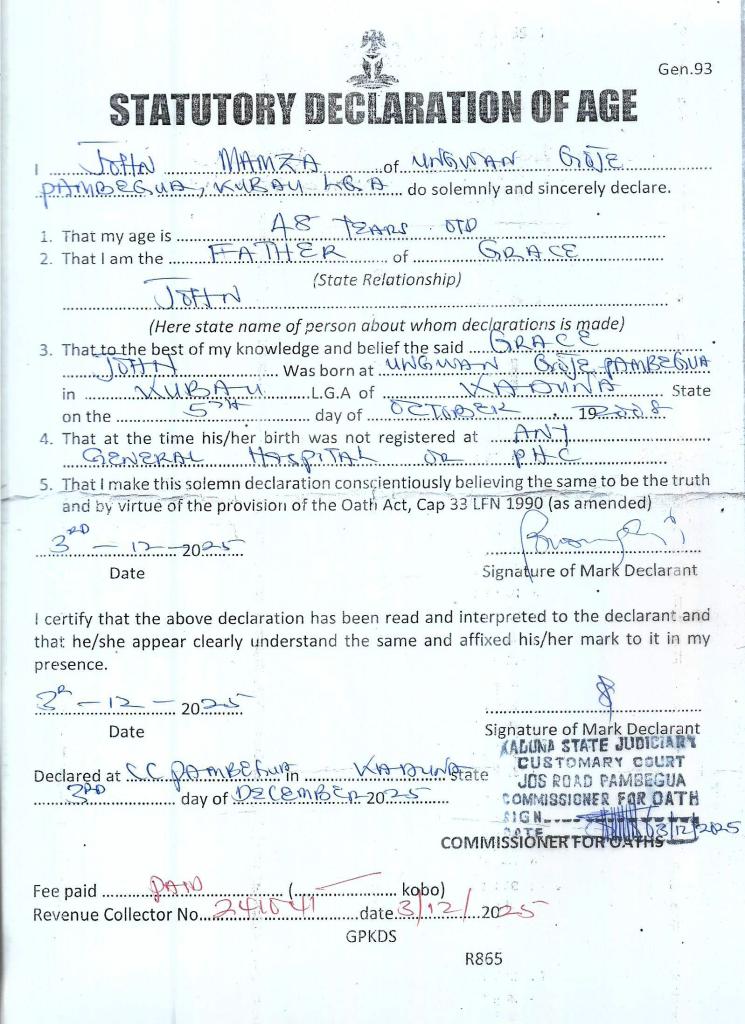 Gen.93
STATUTORY DECLARATION OF AGE
I JOHN MAMZA of UNGWAN GOJE
PAMBEGUA, KUBAU L.G.A do solemnly and sincerely declare.
1. That my age is 48 YEARS OLD
2. That I am the FATHER of GRACE
(State Relationship)
JOHN
(Here state name of person about whom declarations is made)
3. That to the best of my knowledge and belief the said GRACE
JOHN Was born at UNGWAN GOJE PAMBEGUA
in KUBAU L.G.A of KADUNA State
on the 5TH day of OCTOBER 19 2008
4. That at the time his/her birth was not registered at ANY
GENERAL HOSPITAL OR PHC
5. That I make this solemn declaration conscientiously believing the same to be the truth
and by virtue of the provision of the Oath Act, Cap 33 LFN 1990 (as amended)
3RD - 12 - 2025
Date
Signature of Mark Declarant
I certify that the above declaration has been read and interpreted to the declarant and
that he/she appear clearly understand the same and affixed his/her mark to it in my
presence.
3R - 12 - 2025
Date
Signature of Mark Declarant
KADUNA STATE JUDICIARY
CUSTOMARY COURT
JOS ROAD PAMBEGUA
COMMISSIONER FOR OATH
SIGN
DATE 03/12/2025
Declared at C.C. PAMBEGUA in KADUNA State
3RD day of DECEMBER 2025
COMMISSIONER FOR OATHS
Fee paid PAID ( kobo)
Revenue Collector No. 241041 date 3/12/2025
GPKDS
R865